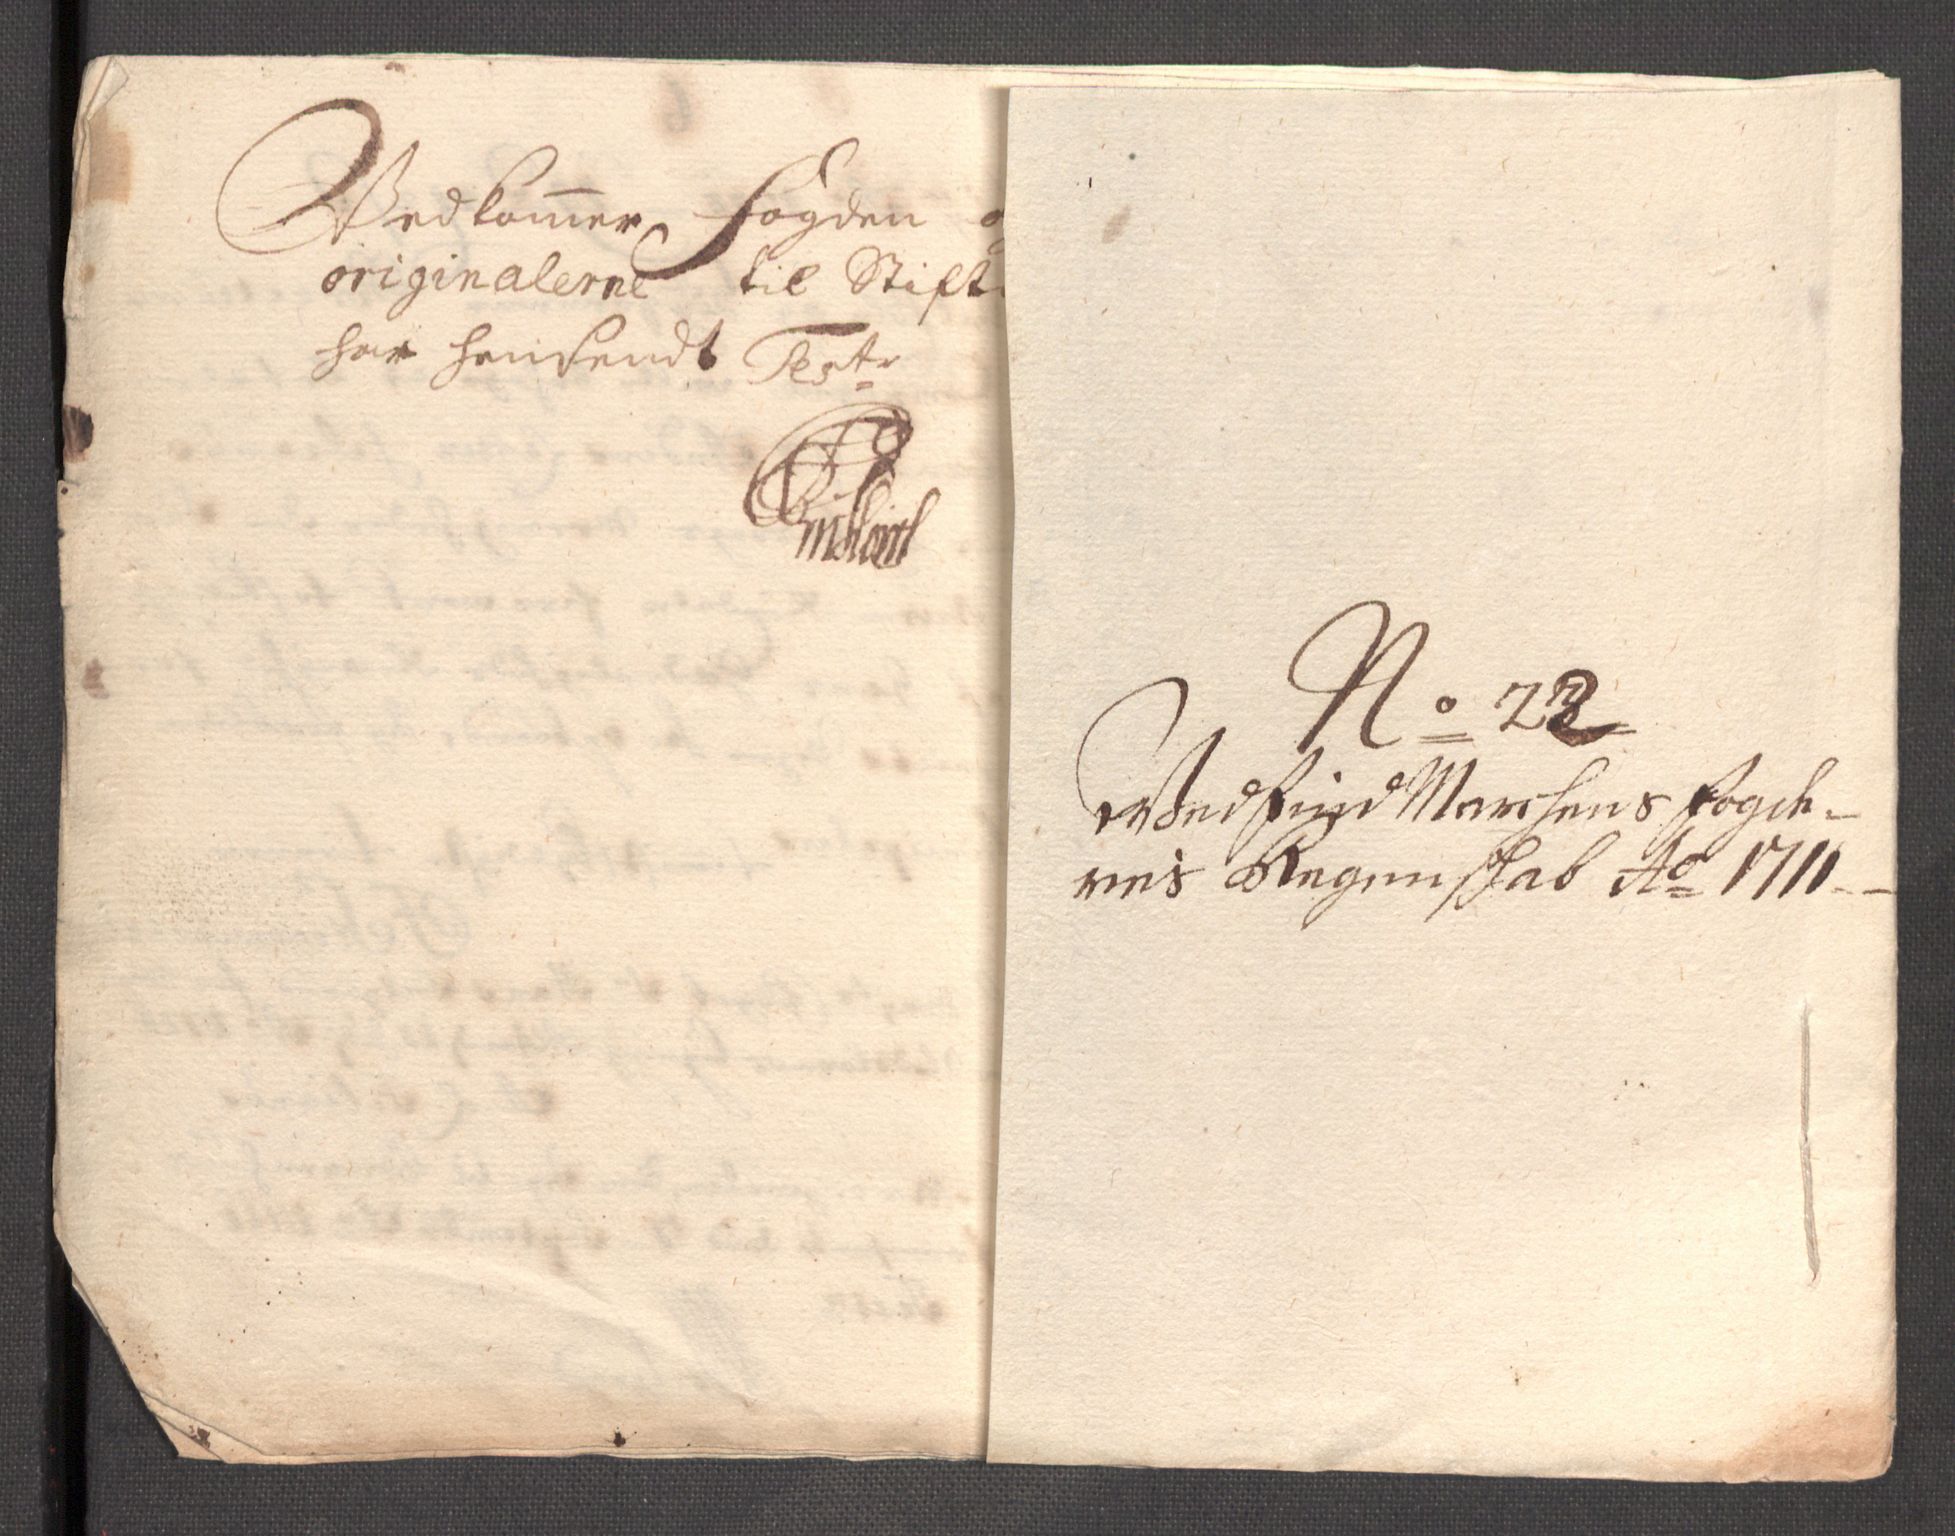 Vedkommer fogden
originalerne til Stift
har hensendt Test
No 22
Ved find Marchens fogde-
ries Regenskab Ao 1711